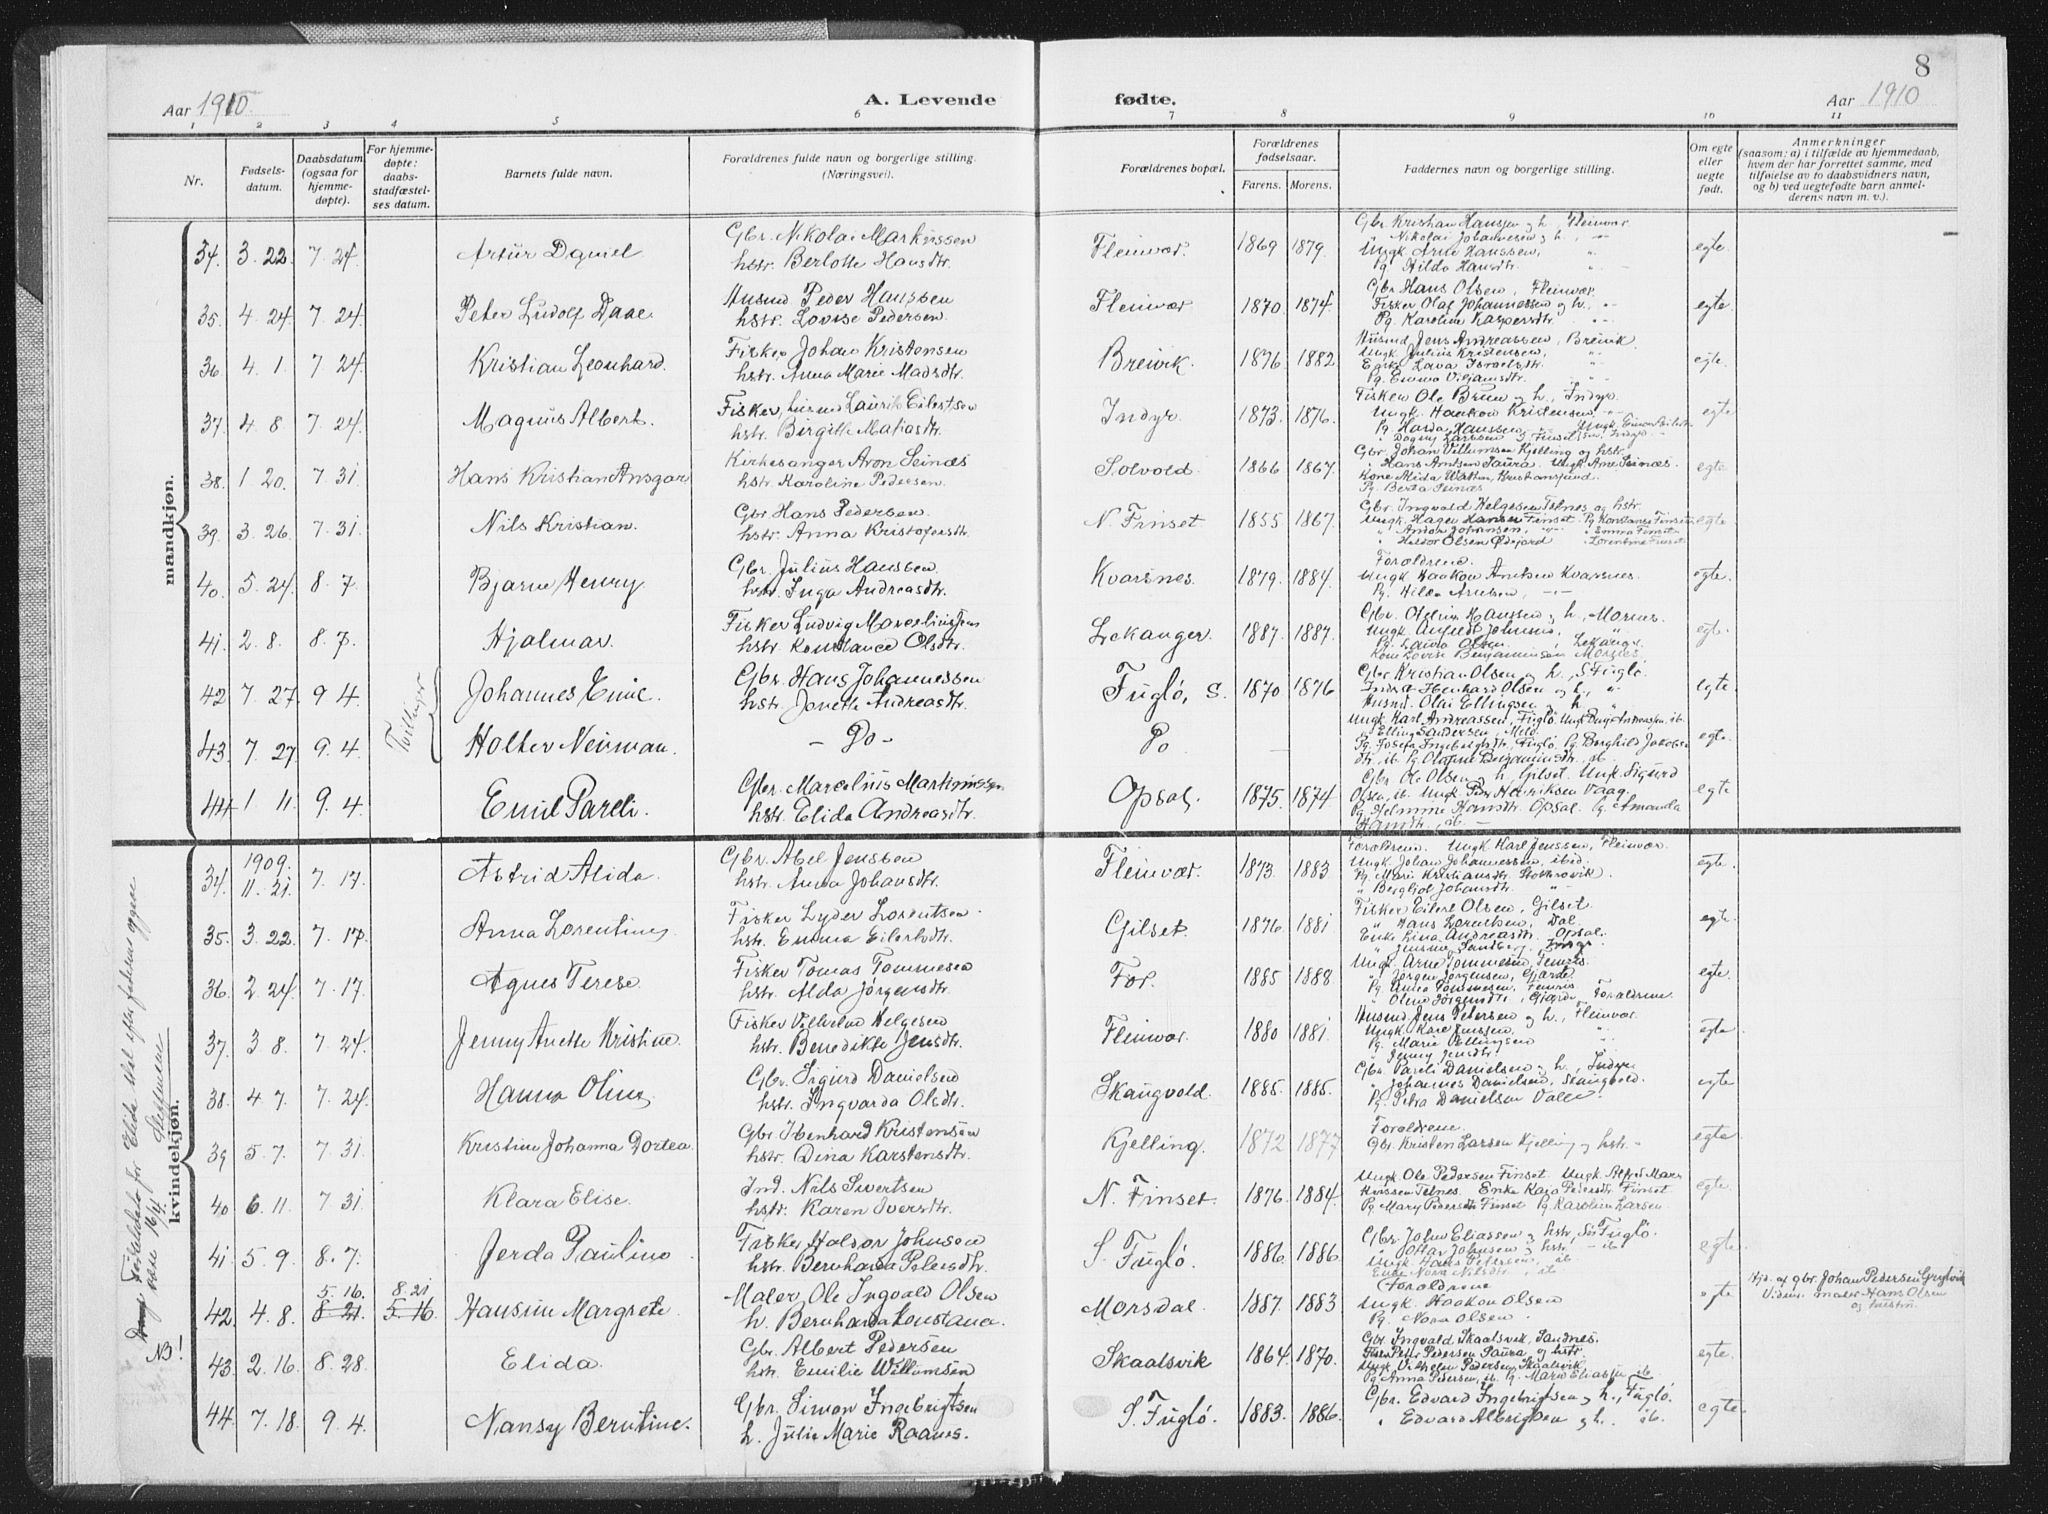 8
Aar 1910. A. Levende fødte. Aar 1910
1 2 3 4 5 6 7 8 9 10 11
Nr. Fødsels-datum. Daabsdatum (ogsaa for hjemme-døpte). For hjemme-døpte: daabs-stadfæstel-ses datum. Barnets fulde navn. Forældrenes fulde navn og borgerlige stilling. (Næringsvei). Forældrenes bopæl. Forældrenes fødselsaar. Farens. Morens. Faddernes navn og borgerlige stilling. Om egte eller uegte født. Anmerkninger (saasom: a) i tilfælde av hjemmedaab, hvem der har forrettet samme, med tilføielse av to daabsvidners navn, og b) ved uegtefødte barn anmel-derens navn m. v.).
mandkjøn.
34. 3. 22. 7. 24. Artur Daniel Gbr. Nikolai Markussen Fleinvær. 1869 1879. Gbr. Kristian Hansen og h. Fleinvær. egte
hstr. Berlotte Hansdtr. " Nikolai Johannesen og h.
Ungk Arne Hanssen, "
Pg. Hilda Hansdtr. "
35. 4. 24. 7. 24. Peter Ludolf Daae. Husmd Peder Hanssen Fleinvær 1870 1874. Gbr Hans Olsen, Fleinvær. egte.
hstr. Lovise Pedersen. Fisker Olaf Johannessen og h.
Pg. Karoline Kaspersdtr.
36 4. 1. 7. 24. Kristian Leonhard. Fisker Johan Kristensen Breivik. 1876 1882 Husmd Jens Andreassen, Breivik. egte
hstr. Anna Marie Madsdtr. Ungk Julius Kristensen, "
Enke Lava Israelsdtr. "
Pg. Emma Viljamsdtr.
37. 4. 8 7. 24. Magnus Albert. Fisker, husmd Laurits Eilertsen Indyr. 1873. 1876. Fisker Ole Bruun og h., Indyr. egte
hstr. Bergitte Matiasdtr. Ungk. Haakon Kristensen,
Pg. Harda Hanssen
38. 1. 20. 7. 31. Hans Kristian Ansgar Kirkesanger Aron Seinæs Solvold. 1866 1867. Gbr. Johan Villumsen Kjelling og hstr. egte
hstr. Karoline Pedersen. " Hans Arntsen Saura. Ungk Arne Seinæs.
Kristiansund.
Pg. Berta Seinæs
39. 3. 26. 7. 31 Nils Kristian. Gbr Hans Pedersen. N. Finset 1855 1867. Gbr. Ingvald Helgesen Tetnes og hstr. egte
hstr. Anna Kristofersdtr. Ungk. Hagen Hansen Finset. Pg Konstanse Finset
" Anton Johansen,
" Heldor Olsen Ødejord
40. 5. 24. 8. 7 Bjarne Henry Gbr. Julius Hanssen Kvarsnes. 1879. 1884. Forældrene. egte.
hstr. Inga Andreasdtr. Ungk Haakon Arntsen Kvarsnes.
Pg. Hilda Arntsen,
41. 2. 8. 8. 7. Hjalmar. Fisker Ludvig Marcelinssen Lekanger. 1887. 1887. Gbr. Oldrin Hanssen og h., Morsnes. egte.
hstr. Konstance Olsdtr. Ungk Johnsen,
Pg. Laura Olsen. , Lekanger
Kone Lovise Benjaminsen Morsnes.
42 7. 27. 9 4. Tvillinger Johannes Emil Gbr. Hans Johannessen Fuglø, S. 1870 1876 Gbr Kristian Olsen og h., S. Fuglø. egte
hstr. Janette Andreasdtr. Inderst Ibenhard Olsen og h., "
Husmd. Olai Ellingsen og h. "
43. 7. 27 9. 4. Holter Neuman. – Do – Do – Ungk Karl Andreassen, Fuglø. egte.
" Elling Sandersen,
Pg. Josefa Ingebrigtsdtr. Fuglø. Pg. Borghild Jakobs
dtr., ib. Pg. Olafine Benjaminsdtr., ib.
44. 1. 11. 9. 4. Emil Pareli. Gbr. Marcelius Martinussen Opsal. 1875. 1874 Gbr. Ole Olsen og h., Gilset. Ungk. Sigurd egte
hstr. Elida Andreasdtr. Olsen, ib. Ungk. Peder Henriksen Vaag.
Pg. Helmine Hansdtr. Opsal. Pg. Amanda
Hansdtr., ib. –
kvindekjøn.
34. 1909. 11. 21. 7. 17. Astrid Alida. Gbr. Abel Jenssen Fleinvær. 1873. 1883 Forældrene. Ungk Karl Jenssen, Fleinvær. egte.
hstr. Anna Johansdtr. Ungk. Johan Johannessen, ibid.
Pg. Marie Kristiansdtr.
" Bergliot Johansdtr. "
35. 3. 22. 7. 17. Anna Lorentine Fisker Lyder Lorentsen. Gilset. 1876 1881 Fisker Eilert Olsen, Gilset. egte.
hstr. Emma Eilertsdtr. " Hans Lorentsen, Dal.
Enke Lina Andreasdtr. Opsal.
36. 2. 24. 7. 17. Agnes Terese. Fisker Tomas Tommesen For. 1885 1888 Ungk. Arne Tommesen, egte.
hstr. Alda Jørgensdtr. " Jørgen Jørgensen, Gjærde.
Pg. Anna Tommesen,
" Oline Jørgensdtr., Gjærde. Forældrene.
37. 3. 8. 7. 24. Jenny Anette Kristine. Fisker Vilhelm Helgesen Fleinvær. 1880 1881. Husmd Jens Petersen og h., Fleinvær egte
hstr. Benedikte Jensdtr. Ungk. Kare Jenssen,
Pg. Marie Ellingsen
" Jenny Jensdtr.
38. 4. 7. 7. 24. Hanna Oline Gbr. Sigurd Danielsen Skaugvold. 1885. 1885. Gbr. Pareli Danielsen og h., Indyr egte
hstr. Ingvarda Olsdtr. " Johannes Danielsen, Skaugvold.
Pg. Petra Danielsen Valle.
39 5. 7. 7. 31. Kristine Johanna Dortea. Gbr Ibenhard Kristensen Kjelling. 1872 1877 Forældrene. egte
hstr. Dina Karstensdtr. Gbr. Kristen Larsen Kjelling og hstr.
40 6. 11. 7 31. Klara Elise. Ind. Nils Sivertsen N. Finset. 1876. 1884. Ungk Ole Pedersen Finset. Ungk. Alfred Mari egte.
hstr. Karen Iversdtr. nussen Tetnes. Enke Kaja Pedersdtr Finset
Pg Mary Pedersdtr Finset Pg Karoline Larsen.
41 5. 9. 8. 7. Jerda Pauline Fisker Haldor Johnsen S. Fuglø. 1886. 1886. Gbr. John Eliassen og hstr, Sø Fuglø. egte.
hstr. Bernharda Petersdtr. " Ottar Johnsen og hstr. – ib
Ungk Hans Petersen, ib
Enke Nora Nilsdtr., ib
42. 4. 8. 5. 16. 8. 21 8. 21 5. 16. Hansine Margrete Maler, Ole Ingvald Olsen Morsdal. 1887. 1883 Forældrene egte Hjd. af gbr. Johan Pedersen Gryt
h. Bernharda Konstance. Ungk. Haakon Olsen Vidner: maler Hans Olsen
Pg. Nora Olsen. og hustru.
43. 2. 16. 8. 28. Elida. Gbr. Albert Pedersen Skaalsvik 1864. 1870. Gbr. Ingvald Skaalsvik, Sandnes. egte.
hstr. Emilie Willumsen Peder Pedersen Saura og hstr.
Ungk. Vilhelm Pedersen, Skaalsvik
Pg. Anna Pedersen, ib. Pg. Marie Eliassen ib
44. 7. 18. 9. 4. Nansy Berntine. Gbr. Simon Ingebrigtsen S. Fuglø. 1883. 1886. Gbr. Edvard Ingebrigtsen og h., Fuglø. egte.
h. Julie Marie Raanes. " Edvard Albrigtsen og h. ib.
NB! Forældre for Elida skal efter faderens opgave
være 16/4. Stafsmene